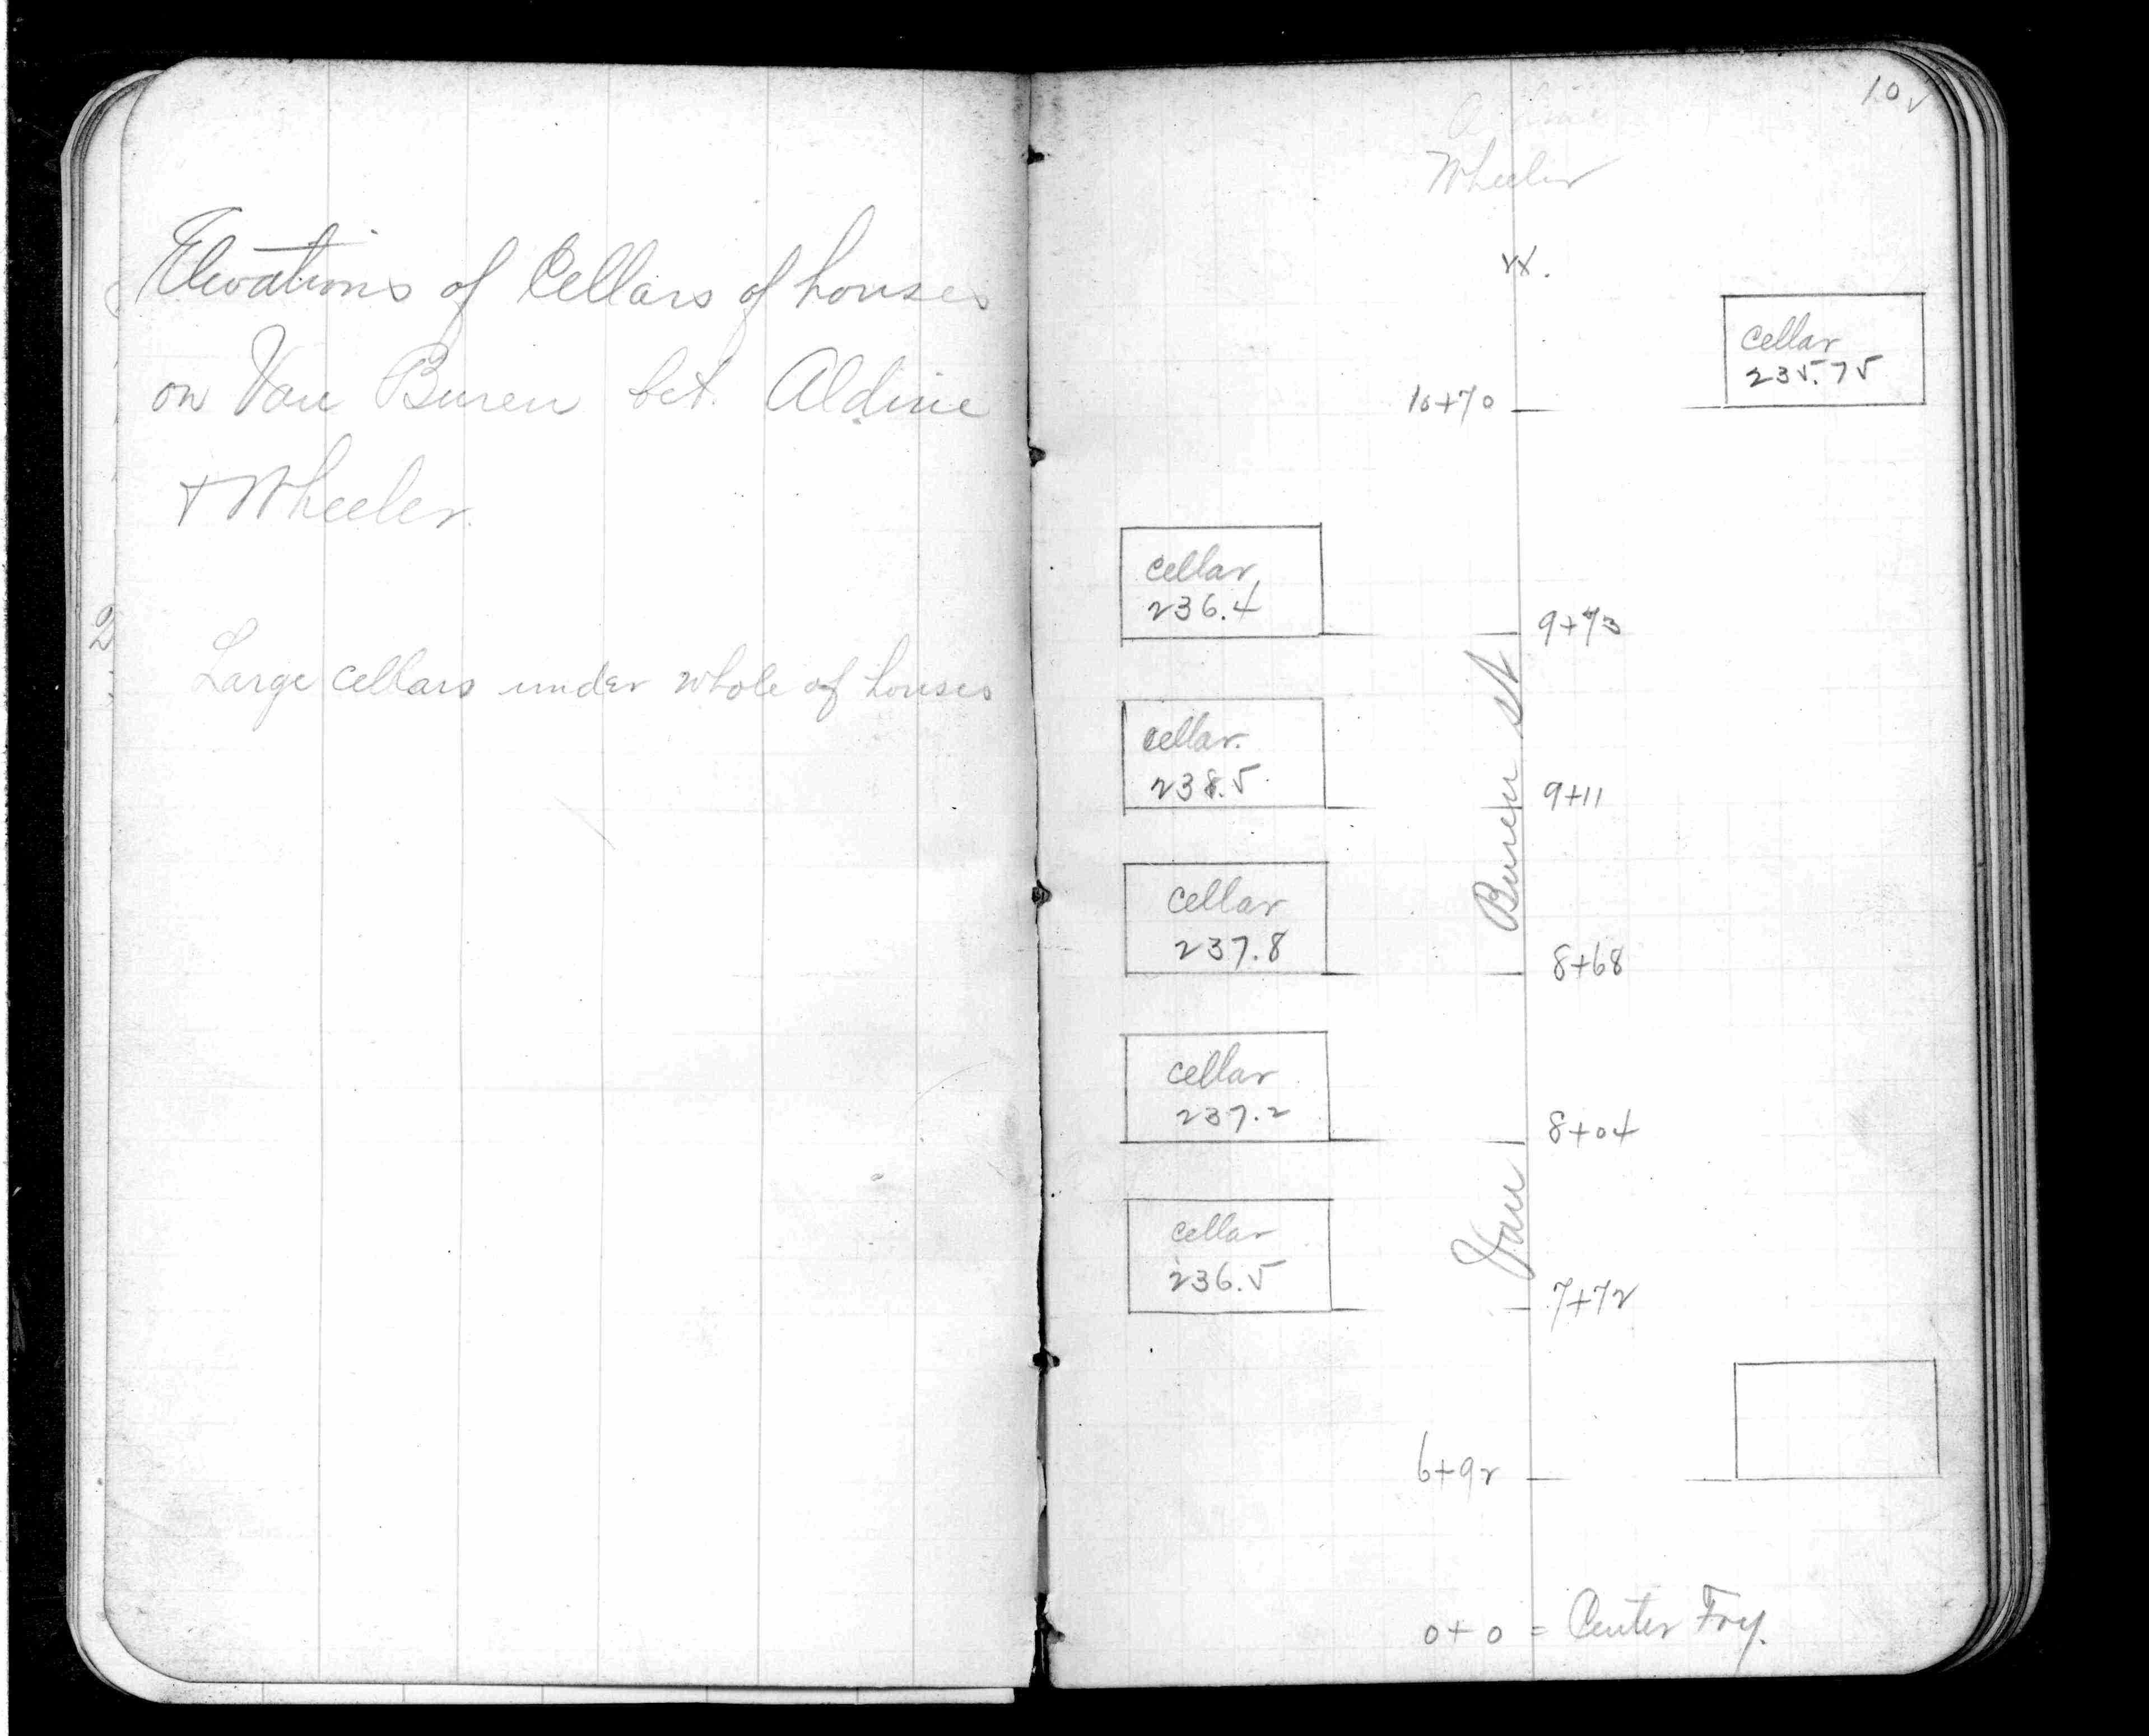 Elevations of Cellars of houses
on Van Buren bet. Aldine
+ Wheeler.
2
Large cellars under whole of houses
10
Wheeler
cellar
235.75
10+70
cellar
236.4
cellar.
238.5
9+11
cellar
237.8
8+68
cellar
237.2
8+04
cellar
236.5
7+72
Van Buren st
6+92
0+0 = Center Fry.